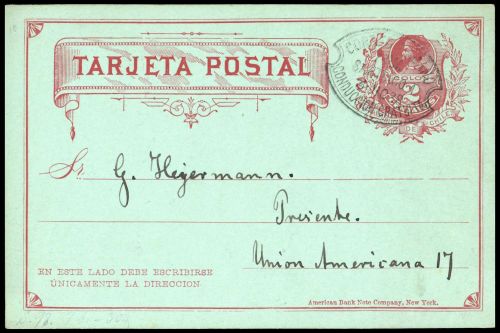 TARJETA POSTAL
COLON
2
DE CHILE
Sr. G. Heyermann.
Presente.
Union Americana 17
EN ESTE LADO DEBE ESCRIBIRSE
ÚNICAMENTE LA DIRECCION
American Bank Note Company, New York.